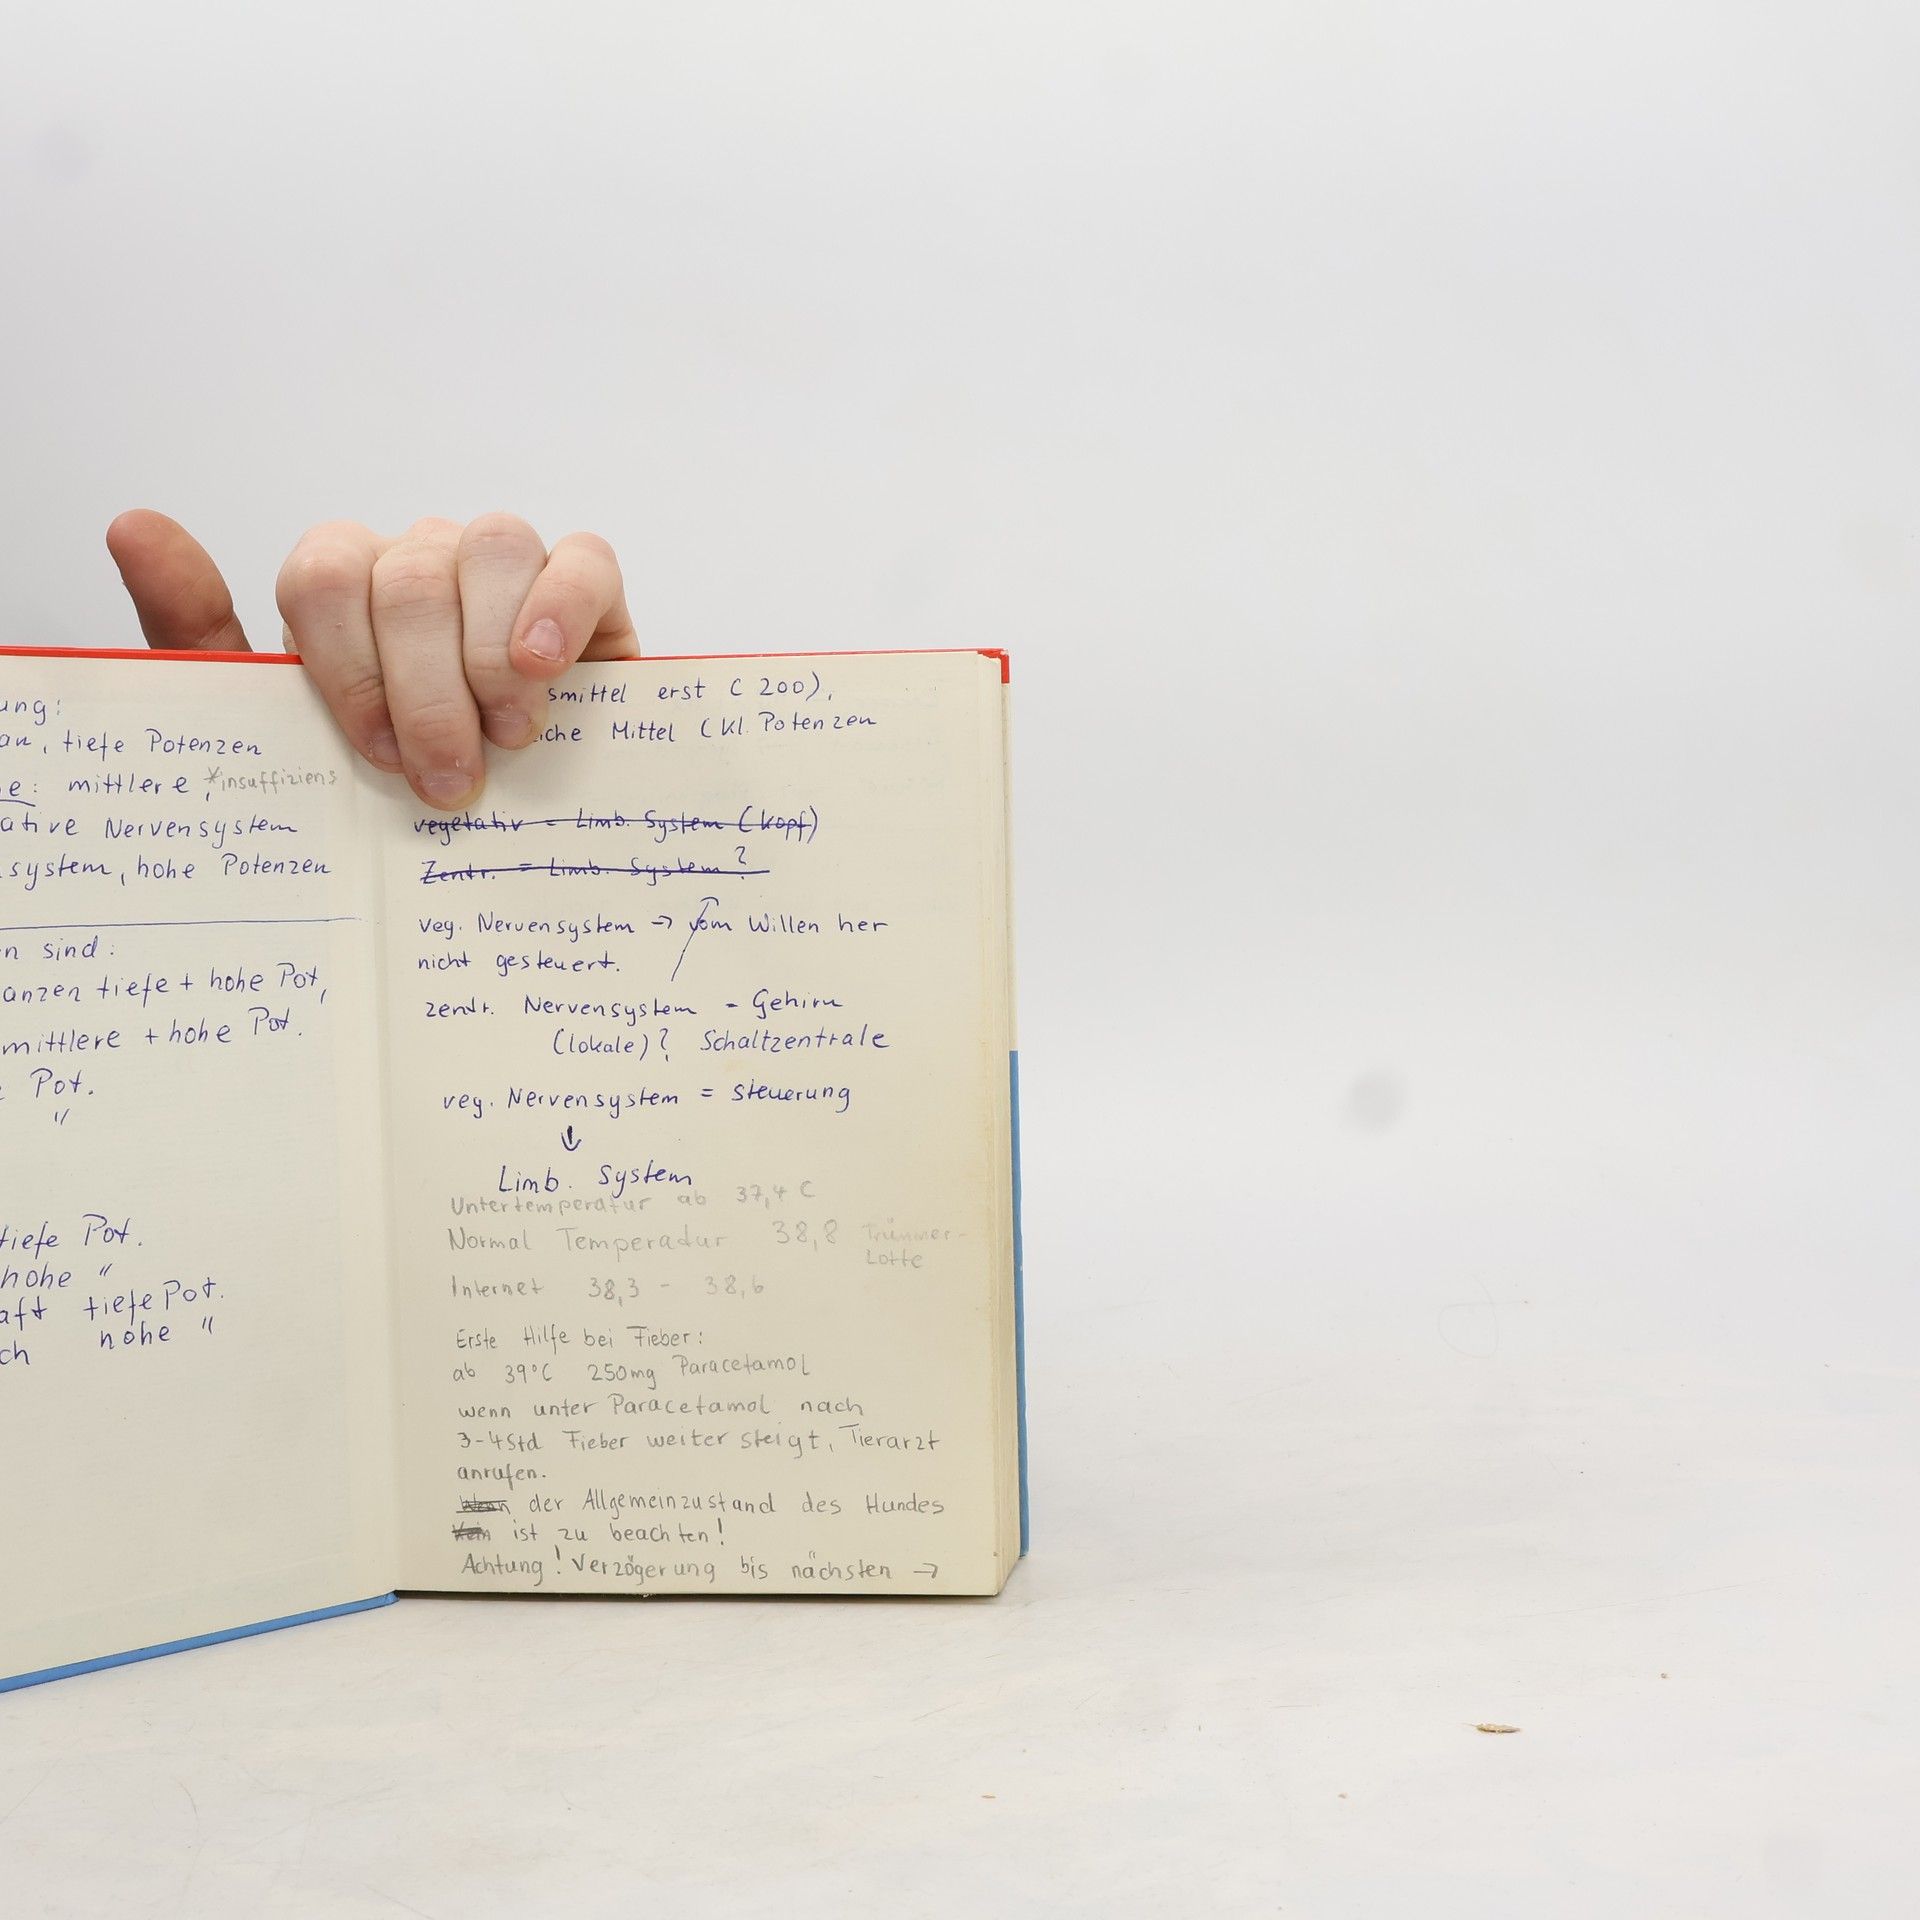 ung:
an, tiefe Potenzen
e: mittlere *insuffiziens
ative Nervensystem
system, hohe Potenzen
n sind:
anzen tiefe + hohe Pot,
mittlere + hohe Pot.
Pot.
"
tiefe Pot.
hohe "
aft tiefe Pot.
ch hohe "
smittel erst C 200),
iche Mittel (Kl. Potenzen
vegetativ = Limb. System (Kopf)
Zentr. = Limb. System?
veg. Nervensystem → vom Willen her
nicht gesteuert.
zentr. Nervensystem = Gehirn
(lokale)? Schaltzentrale
veg. Nervensystem = steuerung
↓
Limb. System
Untertemperatur ab 37,4 C
Normal Temperatur 38,8 Trümmer-
Lotte
Internet 38,3 - 38,6
Erste Hilfe bei Fieber:
ab 39°C 250mg Paracetamol
wenn unter Paracetamol nach
3-4 Std Fieber weiter steigt, Tierarzt
anrufen.
Wenn der Allgemeinzustand des Hundes
Kein ist zu beachten!
Achtung! Verzögerung bis nächsten →